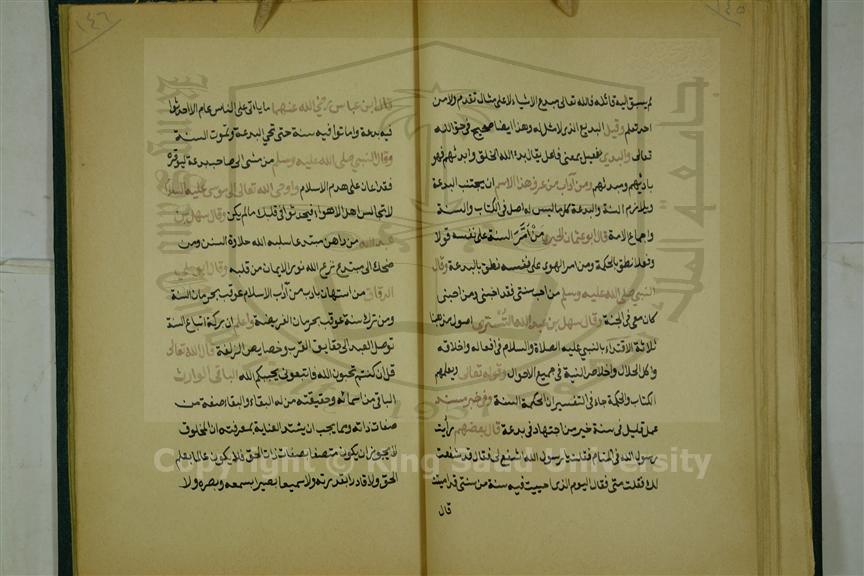 ١٤٥
لم يسبق اليه قائله فالله تعالى مبدع الاشياء لا على مثال تقدم ولا من
احد تعلم وقيل البديع الذي لا مثل له وهذا ايضا صحيح في حق الله
تعالى والبدي فعيل بمعنى فاعل يقال بدء الله الخلق وابدئهم فهو
بادئهم ومبدئهم ومن آداب من عرف هذا الاسم ان يجتنب البدعة
ويلازم السنة والبدعة كل ما ليس له اصل في الكتاب والسنة
واجماع الامة قال ابو عثمان الحيري من أمّر السنة على نفسه قولا
وفعلا نطق بالحكمة ومن امر الهوى على نفسه نطق بالبدعة وقال
النبي صلى الله عليه وسلم من احب سنتي فقد احبني ومن احبني
كان معي في الجنة وقال سهل بن عبد الله التستري اصول مذهبنا
ثلاثة الاقتداء بالنبي عليه الصلاة والسلام في افعاله واخلاقه
واكل الحلال واخلاص النية في جميع الاحوال وقوله تعالى ويعلمهم
الكتاب والحكمة جاء في التفسير ان الحكمة السنة وفي خبر مسند
عمل قليل في سنة خير من اجتهاد في بدعة قال بعضهم رأيت
رسول الله في المنام فقلت يا رسول الله اشفع لي فقال قد شفعت
لك فقلت متى فقال اليوم الذي احييت فيه سنة من سنتي قد اميتت
قال
١٤٦
قال ابن عباس رضي الله عنهما ما ياتي على الناس عام الا احدثوا
فيه بدعة واماتوا فيه سنة حتى تحي البدعة وتموت السنة
وقال النبي صلى الله عليه وسلم من مشى الى صاحب بدعة ليوقره
فقد اعان على هدم الاسلام واوحى الله تعالى الى موسى عليه السلام
لا تجالس اهل الاهواء فيحدثوا في قلبك ما لم يكن وقال سهل بن
عبد الله من داهن مبتدعا سلبه الله حلاوة السنن ومن
ضحك الى مبتدع نزع الله نور الايمان من قلبه وقال ابو علي
الدقاق من استهان بادب من آداب الاسلام عوقب بحرمان السنة
ومن ترك سنة عوقب بحرمان الفريضة واعلم ان بركة اتباع السنة
توصل العبد الى حقايق القرب وخصايص الزلفة قال الله تعالى
قل ان كنتم تحبون الله فاتبعوني يحببكم الله الباقي الوارث
الباقي من اسمائه وحقيقته من له البقاء والبقاء صفة من
صفات ذاته ومما يجب ان يشتد العناية بمعرفته ان المخلوق
لا يجوز ان يكون متصفا بصفات ذات الحق فلا يكون عالما بعلم
الحق ولا قادرا بقدرته ولا سميعا بصيرا بسمعه وبصره ولا
جامعة الملك سعود
1957
Copyright © King Saud University